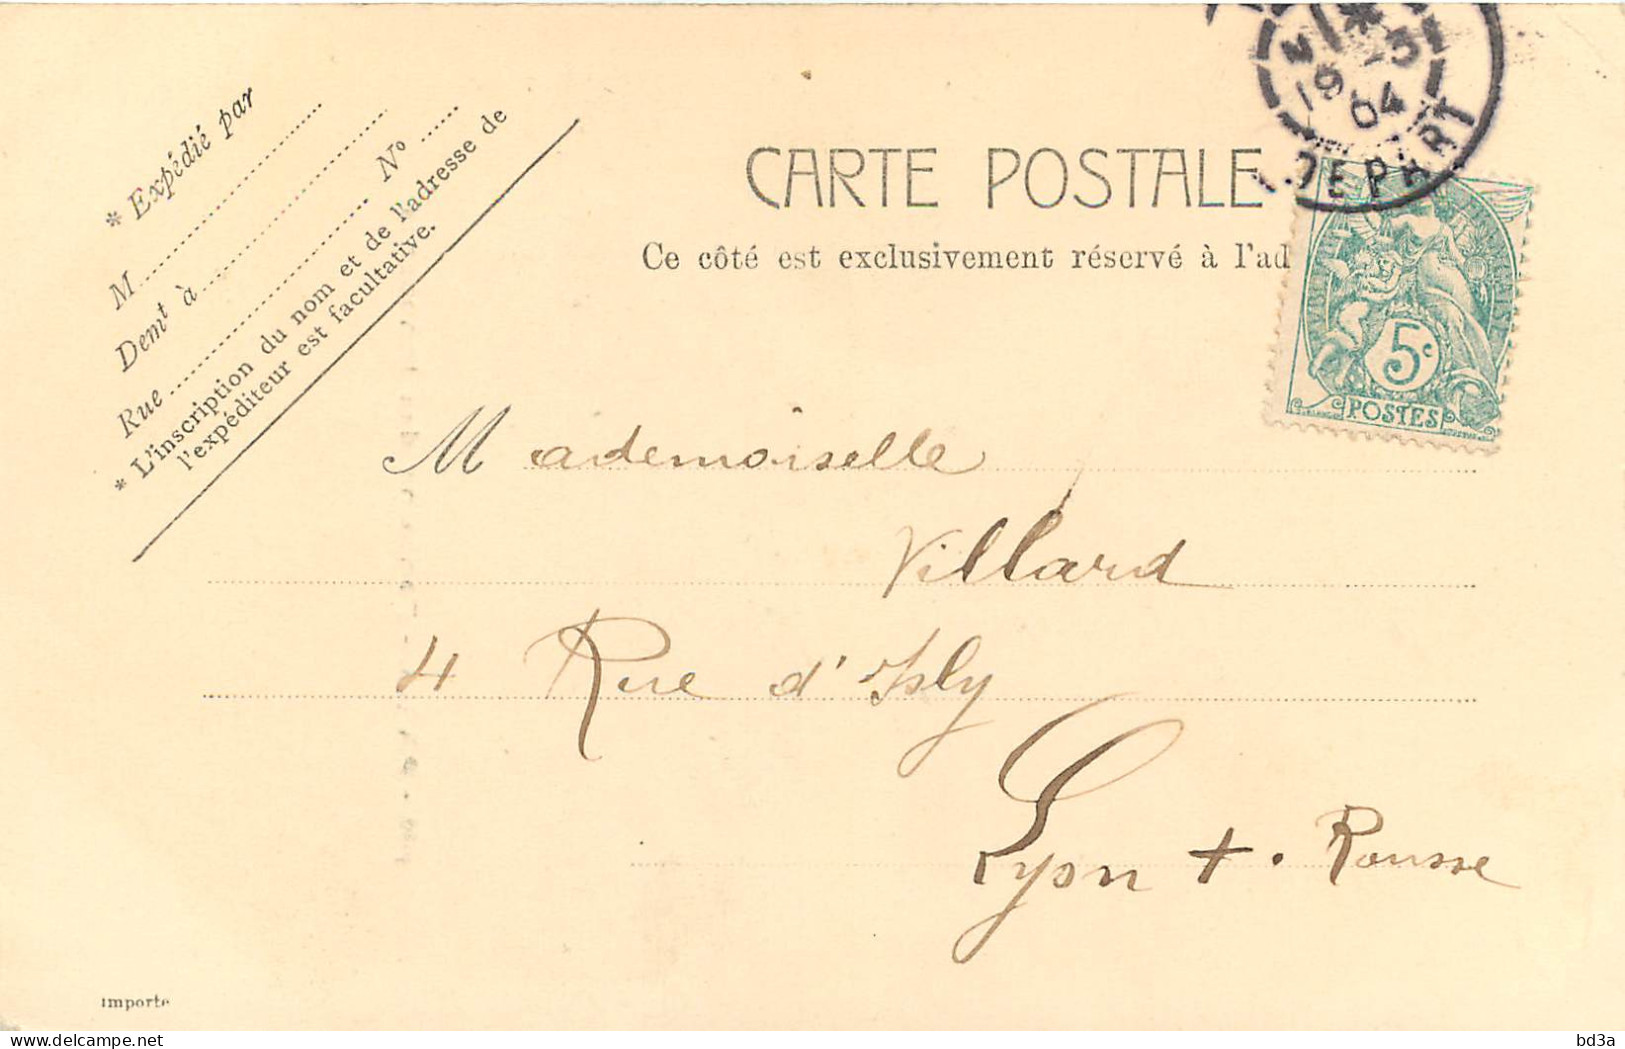 * Expédié par
M
Demt à
Rue Nº
* L'inscription du nom et de l'adresse de
l'expéditeur est facultative.
19 -3
04
DEPART
CARTE POSTALE
Ce côté est exclusivement réservé à l'ad
5c
POSTES
Mademoiselle
Villard
4 Rue d'Isly
Lyon + . Rousse
Importé
delcampe.net
bd3a